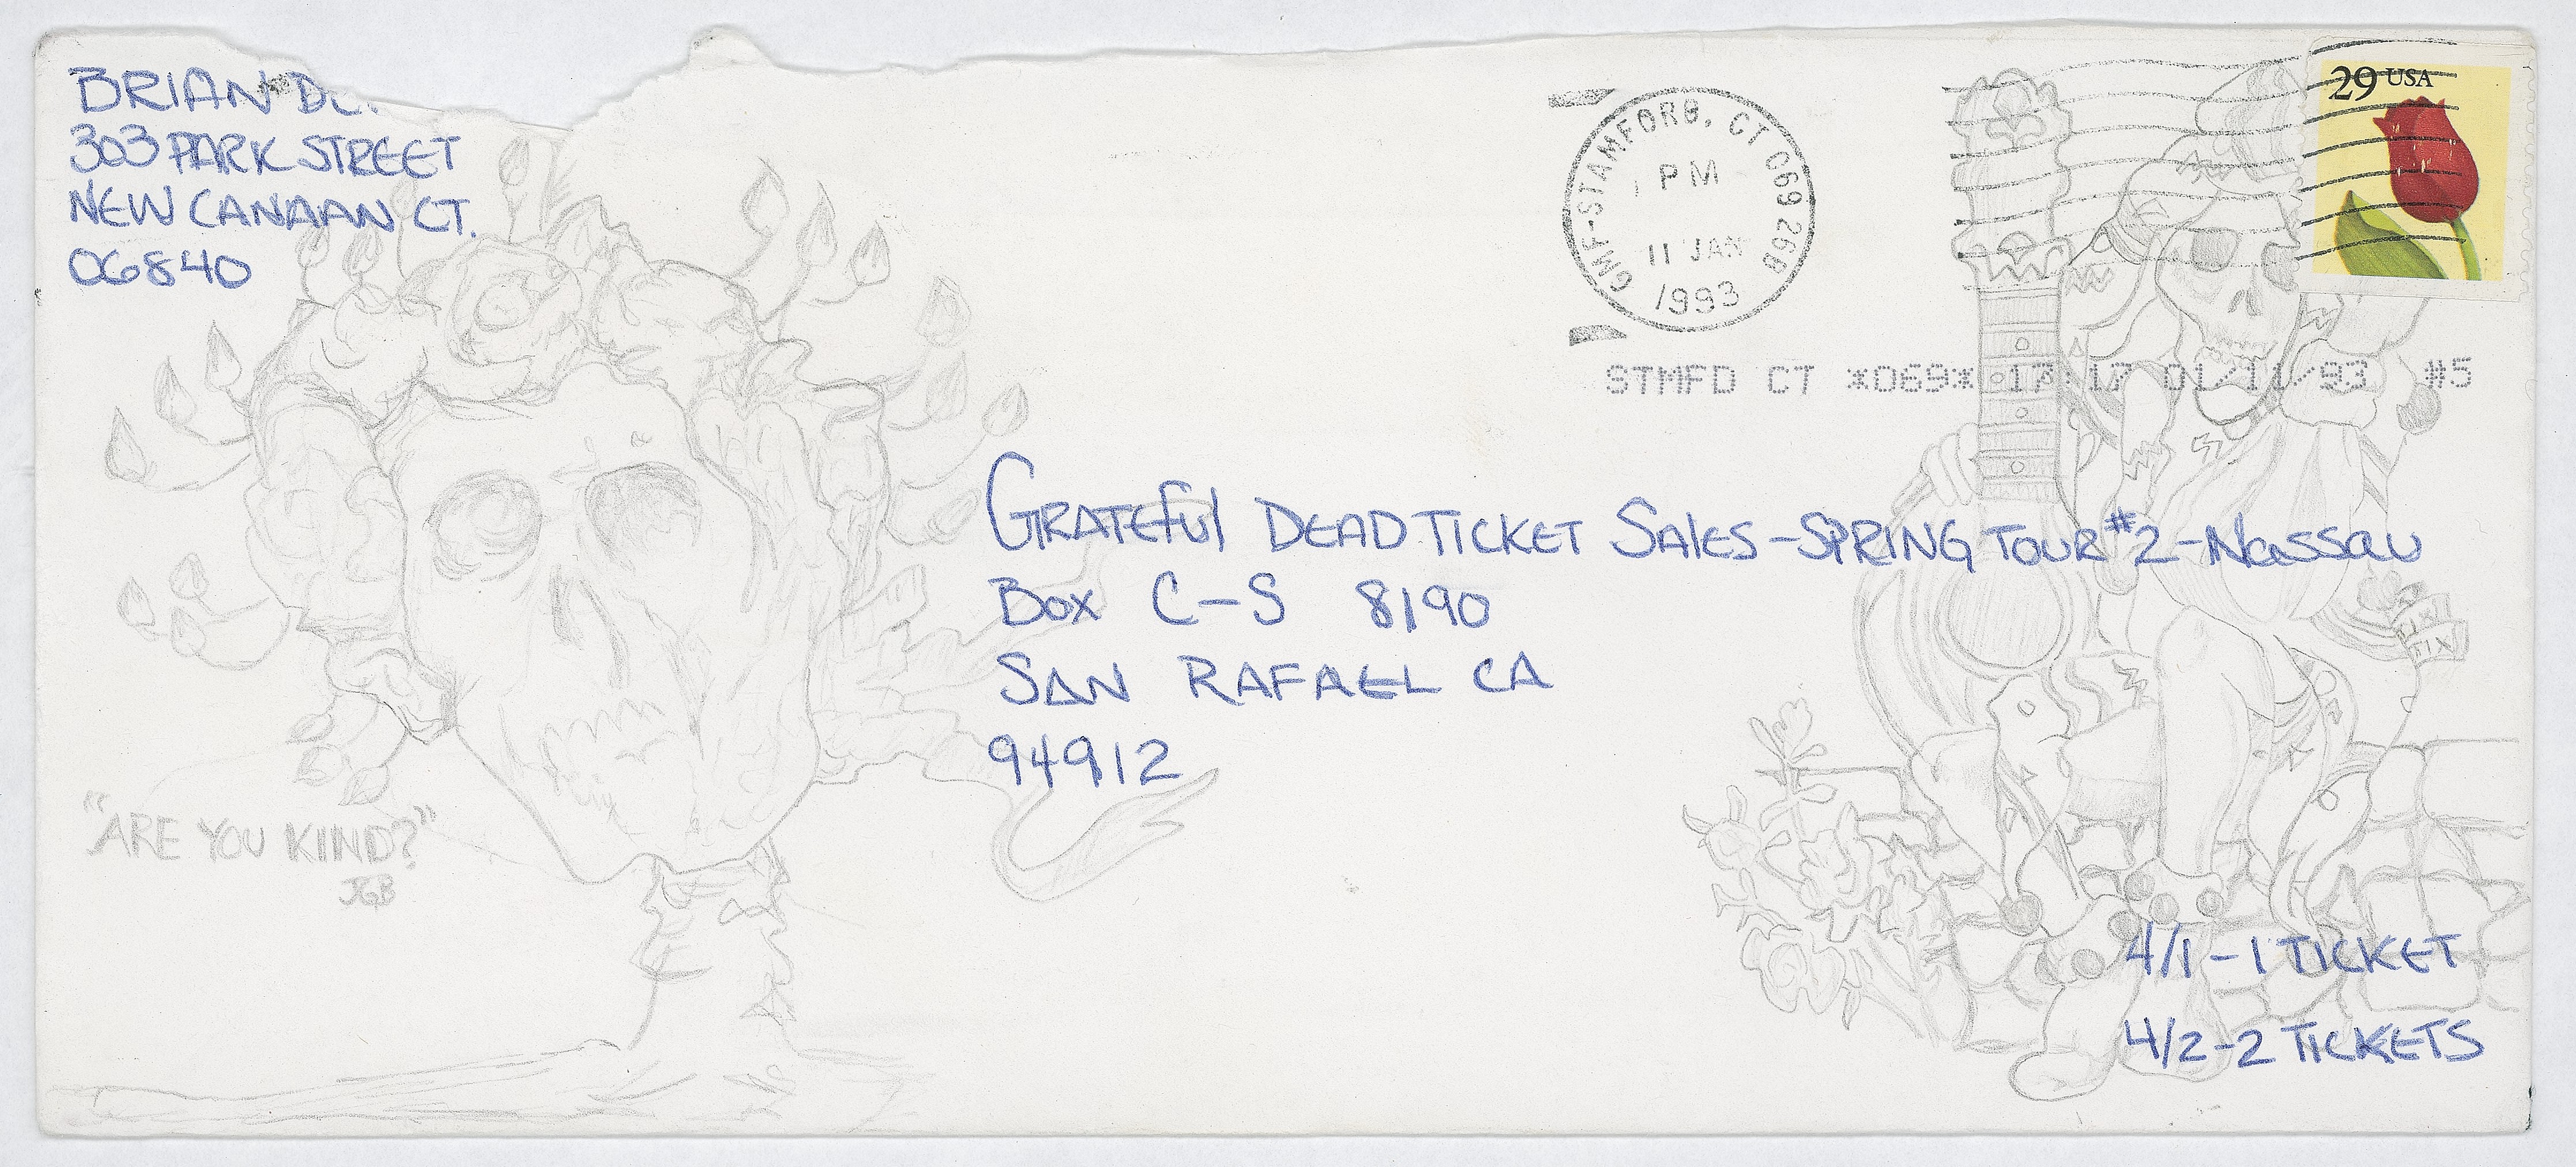 BRIAN
303 PARK STREET
NEW CANAAN CT.
06840
29 USA
GMF-STAMFORD, CT 069 26B
PM
11 JAN
1993
STMFD CT *069* 17:17 01/11/93 #5
GRATEFUL DEAD TICKET SALES-SPRING TOUR #2-Nassau
Box C-S 8190
SAN RAFAEL CA
94912
"ARE YOU KIND?"
JGB
TIX
TIX
4/1-1 TICKET
4/2-2 TICKETS